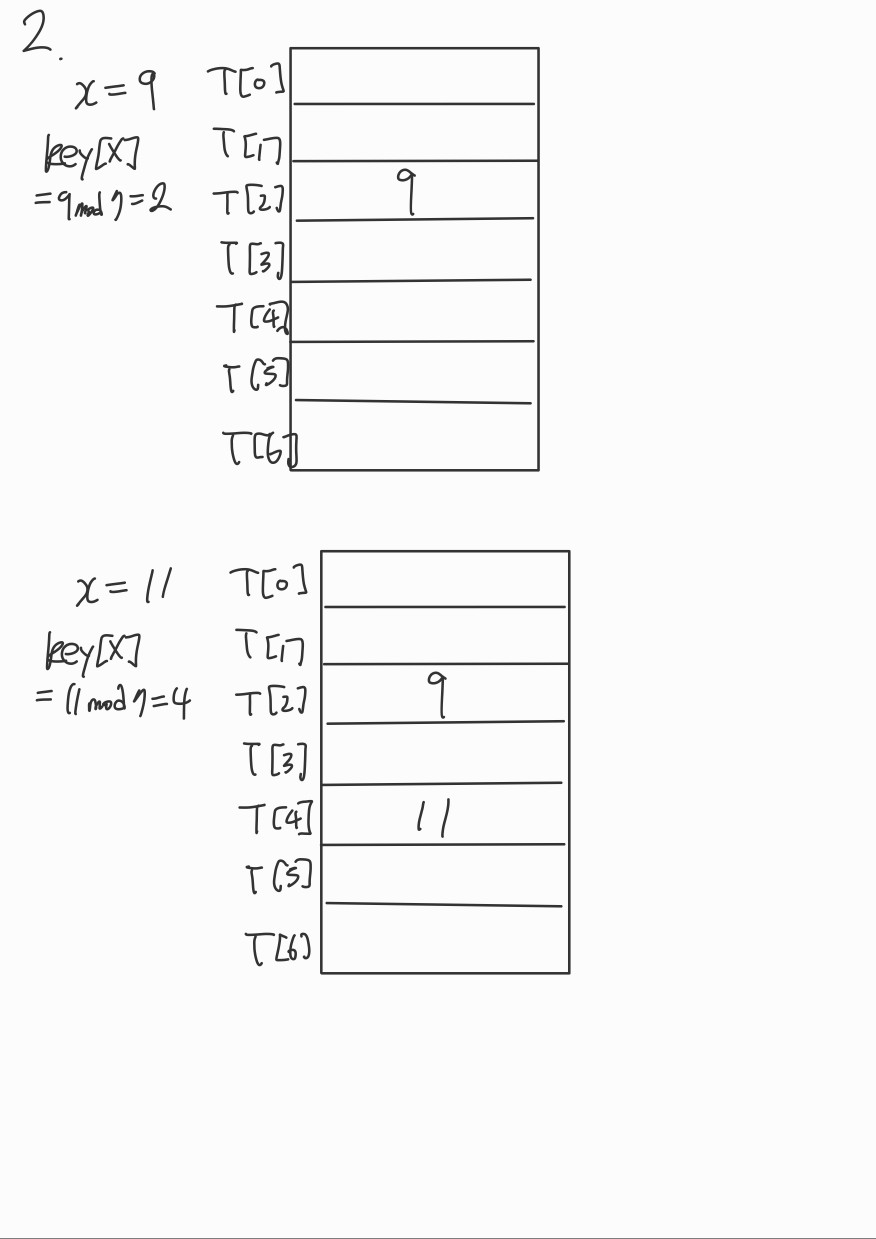 2.
x = 9
key[x]
= 9 mod 7 = 2
T[0]
T[1]
T[2] 9
T[3]
T[4]
T[5]
T[6]
x = 11
key[x]
= 11 mod 7 = 4
T[0]
T[1]
T[2] 9
T[3]
T[4] 11
T[5]
T[6]